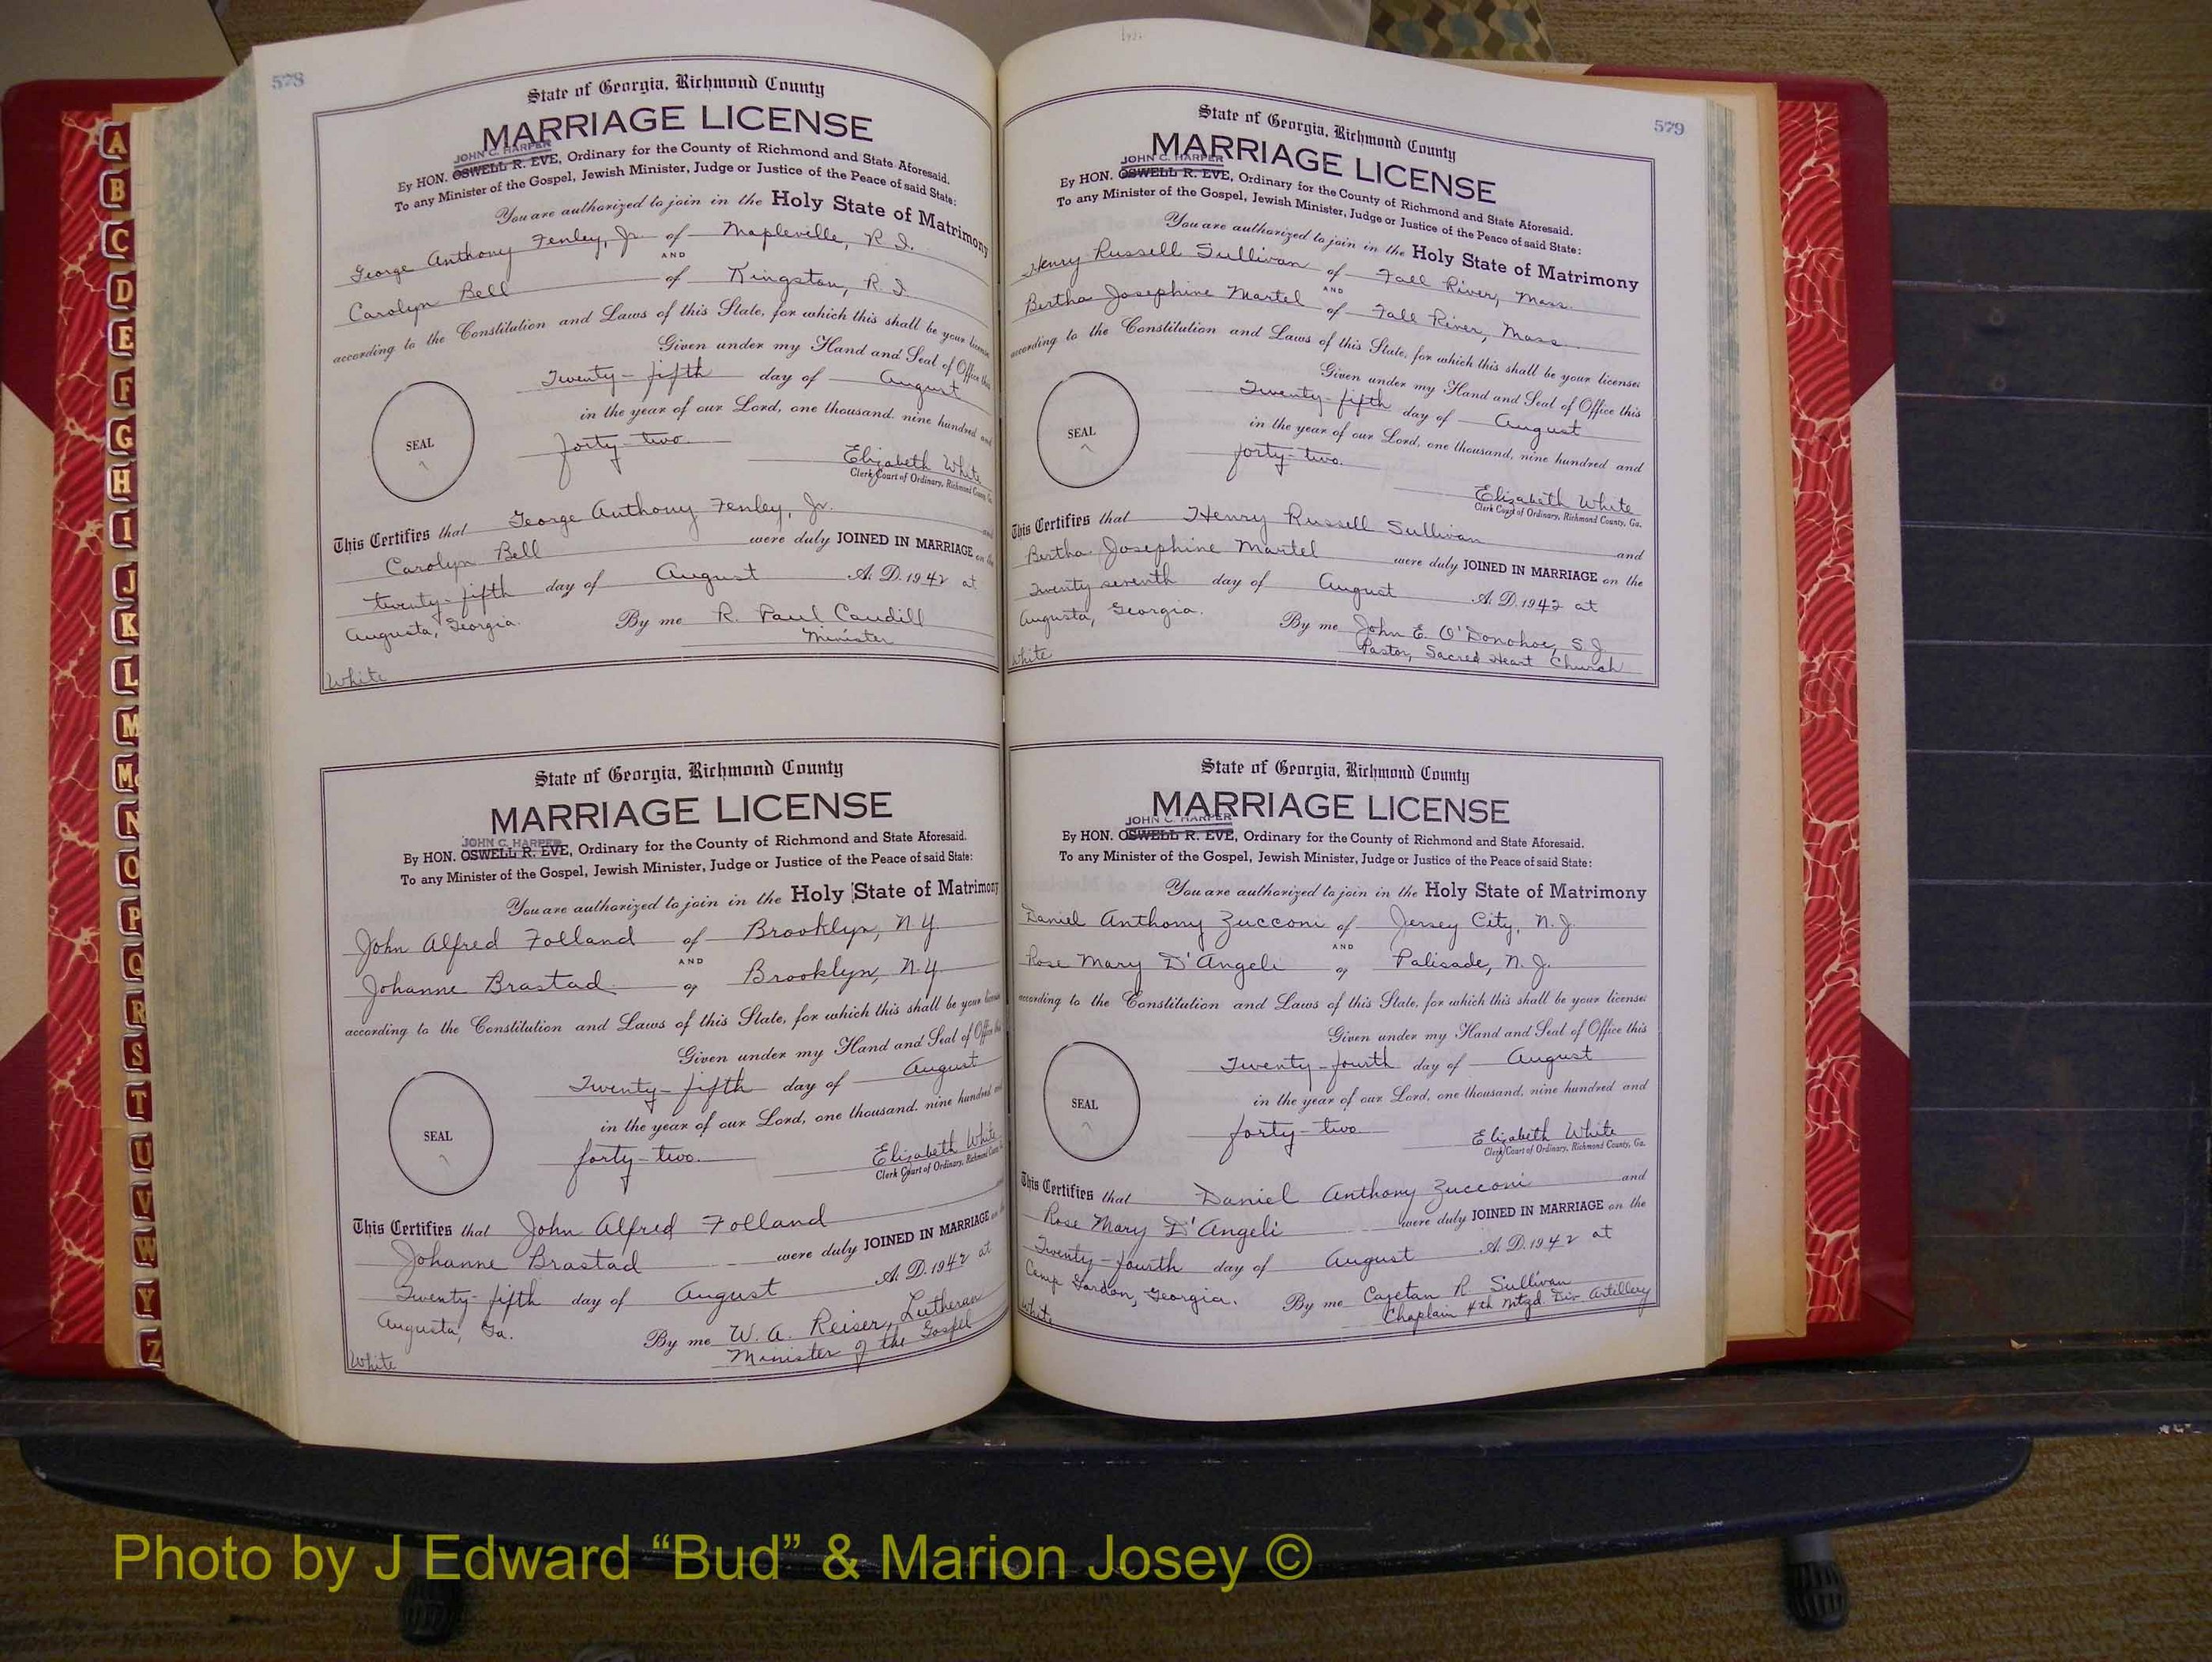 578
State of Georgia, Richmond County
MARRIAGE LICENSE
JOHN C. HARPER
By HON. OSWELL R. EVE, Ordinary for the County of Richmond and State Aforesaid.
To any Minister of the Gospel, Jewish Minister, Judge or Justice of the Peace of said State:
You are authorized to join in the Holy State of Matrimony
George Anthony Fenley, Jr. of Mapleville, R. I.
AND
Carolyn Bell of Kingston, R. I.
according to the Constitution and Laws of this State, for which this shall be your license
Given under my Hand and Seal of Office this
Twenty-fifth day of August
in the year of our Lord, one thousand, nine hundred and
SEAL
forty-two.
Elizabeth White
Clerk Court of Ordinary, Richmond County, Ga.
This Certifies that George Anthony Fenley, Jr. and
Carolyn Bell were duly JOINED IN MARRIAGE on the
twenty-fifth day of August A. D. 1942 at
Augusta, Georgia. By me R. Paul Caudill
Minister
White
State of Georgia, Richmond County
MARRIAGE LICENSE
JOHN C. HARPER
By HON. OSWELL R. EVE, Ordinary for the County of Richmond and State Aforesaid.
To any Minister of the Gospel, Jewish Minister, Judge or Justice of the Peace of said State:
You are authorized to join in the Holy State of Matrimony
John Alfred Folland of Brooklyn, N.Y.
AND
Johanne Brastad of Brooklyn, N.Y.
according to the Constitution and Laws of this State, for which this shall be your license
Given under my Hand and Seal of Office this
Twenty-fifth day of August
in the year of our Lord, one thousand, nine hundred and
SEAL
forty-two.
Elizabeth White
Clerk Court of Ordinary, Richmond County
This Certifies that John Alfred Folland and
Johanne Brastad were duly JOINED IN MARRIAGE on the
Twenty-fifth day of August A. D. 1942 at
Augusta, Ga. By me W. A. Reiser, Lutheran
Minister of the Gospel
White
579
State of Georgia, Richmond County
MARRIAGE LICENSE
JOHN C. HARPER
By HON. OSWELL R. EVE, Ordinary for the County of Richmond and State Aforesaid.
To any Minister of the Gospel, Jewish Minister, Judge or Justice of the Peace of said State:
You are authorized to join in the Holy State of Matrimony
Henry Russell Sullivan of Fall River, Mass.
AND
Bertha Josephine Martel of Fall River, Mass.
according to the Constitution and Laws of this State, for which this shall be your license:
Given under my Hand and Seal of Office this
Twenty-fifth day of August
in the year of our Lord, one thousand, nine hundred and
SEAL
forty-two.
Elizabeth White
Clerk Court of Ordinary, Richmond County, Ga.
This Certifies that Henry Russell Sullivan and
Bertha Josephine Martel were duly JOINED IN MARRIAGE on the
Twenty seventh day of August A. D. 1942 at
Augusta, Georgia. By me John E. O'Donohoe, S.J.
Pastor, Sacred Heart Church
White
State of Georgia, Richmond County
MARRIAGE LICENSE
JOHN C. HARPER
By HON. OSWELL R. EVE, Ordinary for the County of Richmond and State Aforesaid.
To any Minister of the Gospel, Jewish Minister, Judge or Justice of the Peace of said State:
You are authorized to join in the Holy State of Matrimony
Daniel Anthony Zucconi of Jersey City, N.J.
AND
Rose Mary D'Angeli of Palisade, N.J.
according to the Constitution and Laws of this State, for which this shall be your license:
Given under my Hand and Seal of Office this
Twenty-fourth day of August
in the year of our Lord, one thousand, nine hundred and
SEAL
forty-two
Elizabeth White
Clerk Court of Ordinary, Richmond County, Ga.
This Certifies that Daniel Anthony Zucconi and
Rose Mary D'Angeli were duly JOINED IN MARRIAGE on the
Twenty-fourth day of August A. D. 1942 at
Camp Gordon, Georgia. By me Cajetan R. Sullivan
Chaplain 4th Mtzd. Div Artillery
White
A
B
C
D
E
F
G
H
I
J
K
L
M
Mc
N
O
P
Q
R
S
T
U
V
W
Y
Z
Photo by J Edward “Bud” & Marion Josey ©